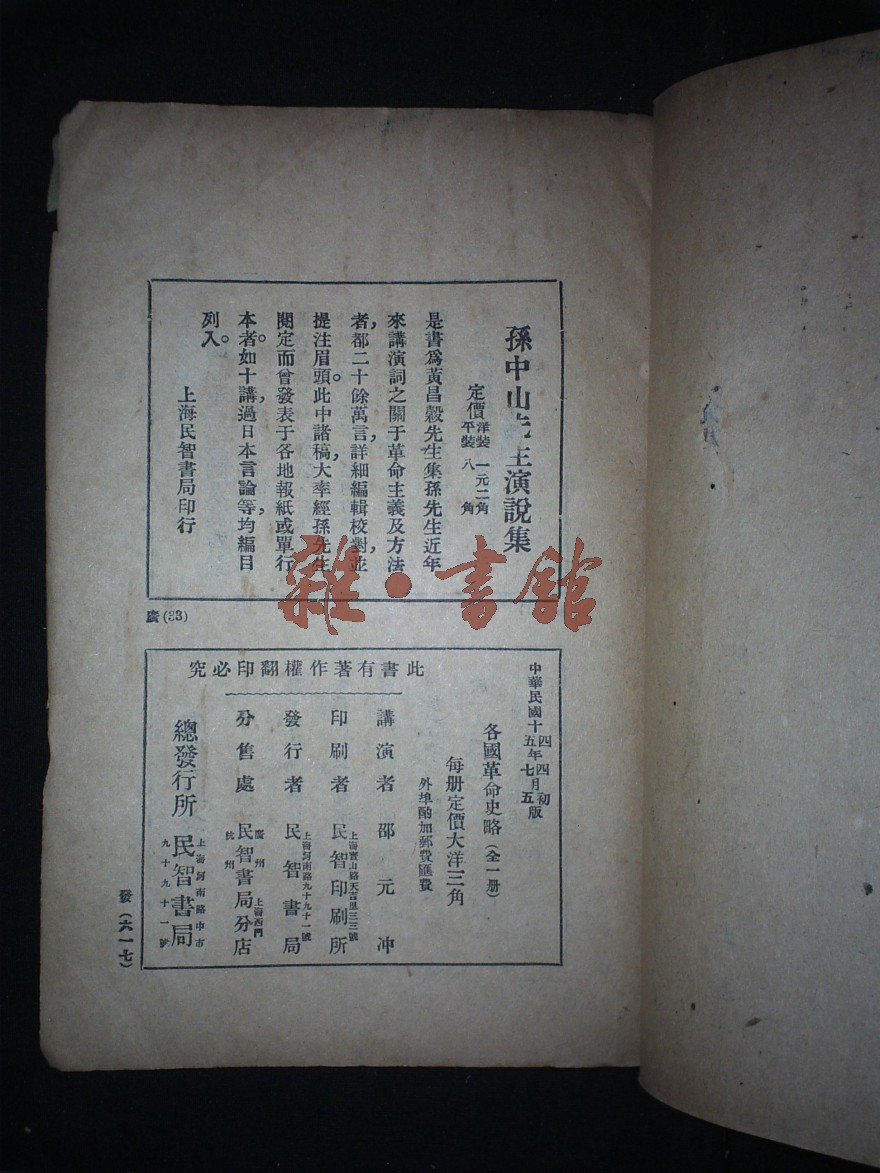 孫中山先生演說集
定價 洋裝 一元二角
平裝 八角
是書爲黃昌穀先生集孫先生近年
來講演詞之關于革命主義及方法
者，都二十餘萬言，詳細編輯校對，並
提注眉頭。此中諸稿，大率經孫先生
閱定而曾發表于各地報紙或單行
本者。如十講，過日本言論等，均編目
列入。
上海民智書局印行
廣(33)
雜·書館
此書有著作權翻印必究
中華民國十四年四月初版
五 七 五
各國革命史略（全一册）
每册定價大洋三角
外埠酌加郵費匯費
講演者 邵元冲
印刷者 上海寶山路天吉里三三號 民智印刷所
發行者 上海河南路九十九十一號 民智書局
分售處 廣州 杭州 上海西門 民智書局分店
總發行所 上海河南路中市九十九十一號 民智書局
發（六一七）